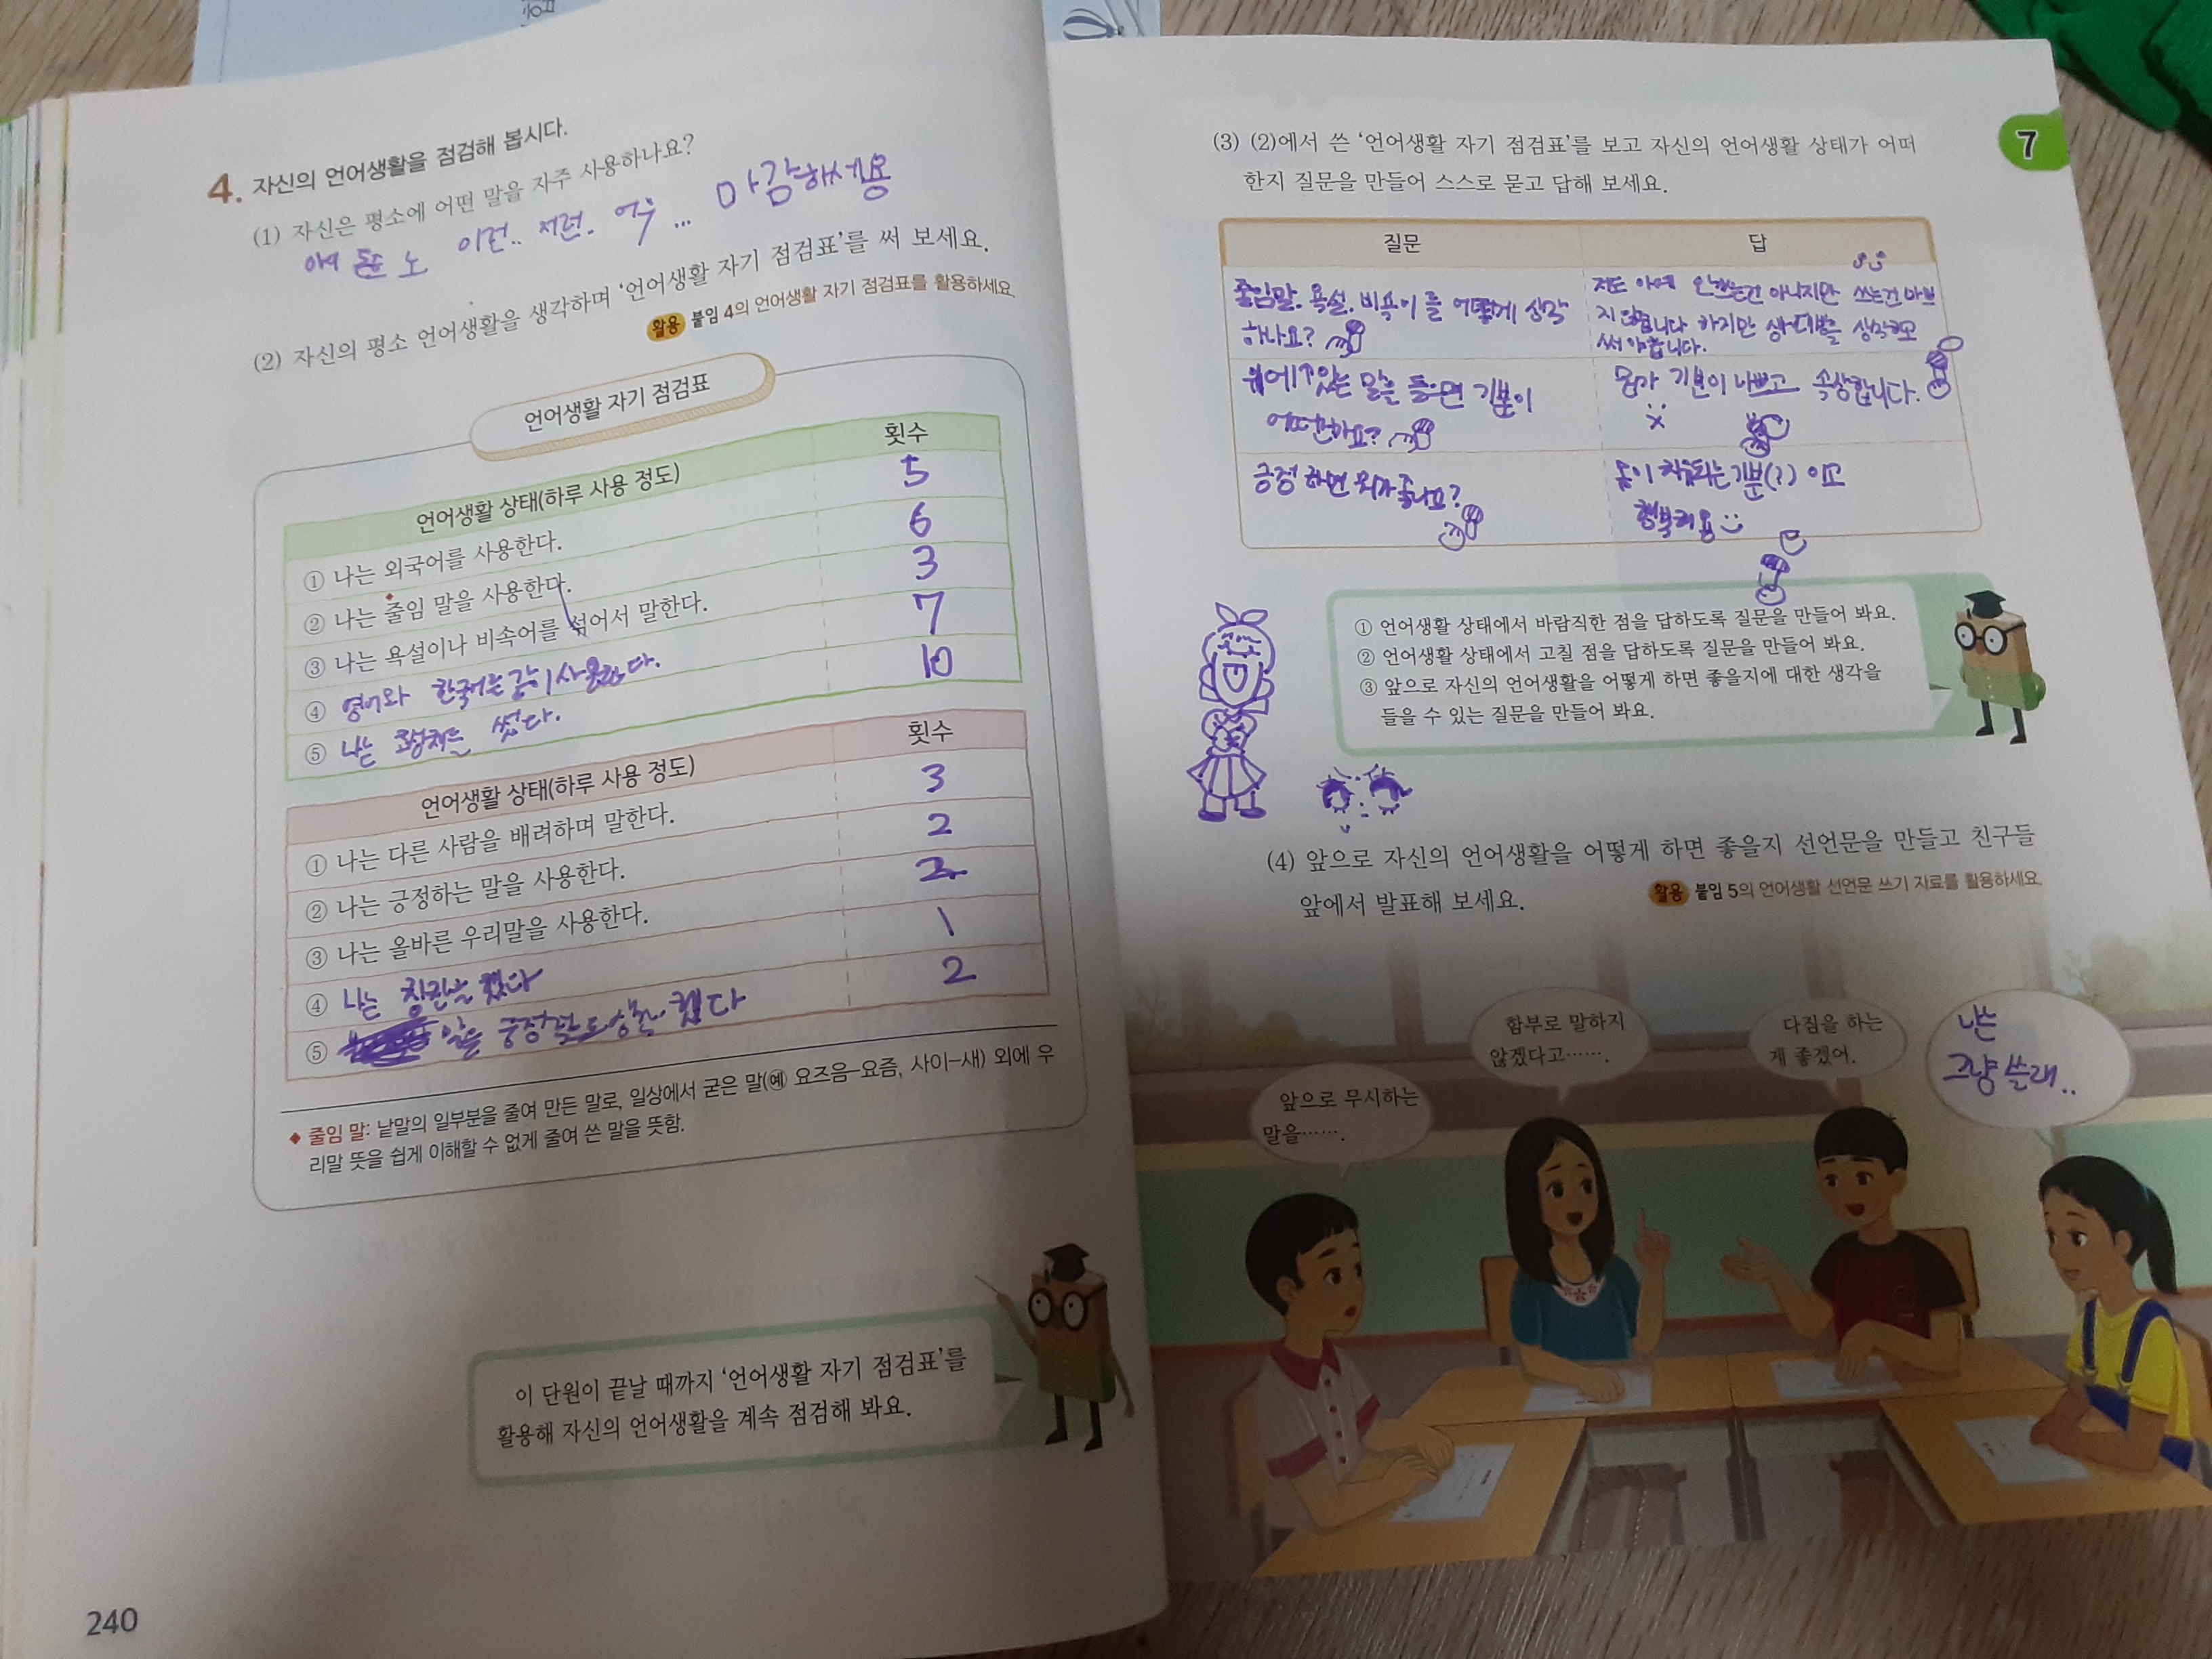 4. 자신의 언어생활을 점검해 봅시다.
(1) 자신은 평소에 어떤 말을 자주 사용하나요?
이런.. 저런. 어우... 마감하세용
(2) 자신의 평소 언어생활을 생각하며 '언어생활 자기 점검표'를 써 보세요.
활용 붙임 4의 언어생활 자기 점검표를 활용하세요.
언어생활 자기 점검표
언어생활 상태(하루 사용 정도) 횟수
① 나는 외국어를 사용한다. 5
② 나는 줄임 말을 사용한다. 6
③ 나는 욕설이나 비속어를 섞어서 말한다. 3
④ 영어와 한국어는 같이 사용한다. 7
⑤ 나는 썼다. 10
언어생활 상태(하루 사용 정도) 횟수
① 나는 다른 사람을 배려하며 말한다. 3
② 나는 긍정하는 말을 사용한다. 2
③ 나는 올바른 우리말을 사용한다. 2
④ 나는 칭찬을 했다 1
⑤ 일을 했다 2
◆ 줄임 말: 낱말의 일부분을 줄여 만든 말로, 일상에서 굳은 말(예 요즈음-요즘, 사이-새) 외에 우
리말 뜻을 쉽게 이해할 수 없게 줄여 쓴 말을 뜻함.
이 단원이 끝날 때까지 '언어생활 자기 점검표'를
활용해 자신의 언어생활을 계속 점검해 봐요.
240
7
(3) (2)에서 쓴 '언어생활 자기 점검표'를 보고 자신의 언어생활 상태가 어떠
한지 질문을 만들어 스스로 묻고 답해 보세요.
질문 답
줄임말. 욕설. 비속어를 어떻게 생각
하나요?
저도 아예 안쓰는건 아니지만 쓰는건 나쁘
지 하지만 상대방을 생각하고
써야합니다.
위에 있는 말을 들으면 기분이
어떤가요?
뭔가 기분이 나쁘고 속상합니다.
긍정하면 뭐가 좋나요?
몸이 치유되는 기분(?)이고
행복해용
① 언어생활 상태에서 바람직한 점을 답하도록 질문을 만들어 봐요.
② 언어생활 상태에서 고칠 점을 답하도록 질문을 만들어 봐요.
③ 앞으로 자신의 언어생활을 어떻게 하면 좋을지에 대한 생각을
들을 수 있는 질문을 만들어 봐요.
(4) 앞으로 자신의 언어생활을 어떻게 하면 좋을지 선언문을 만들고 친구들
앞에서 발표해 보세요.
활용 붙임 5의 언어생활 선언문 쓰기 자료를 활용하세요.
앞으로 무시하는
말을…….
함부로 말하지
않겠다고…….
다짐을 하는
게 좋겠어.
나는
그냥 쓸래..